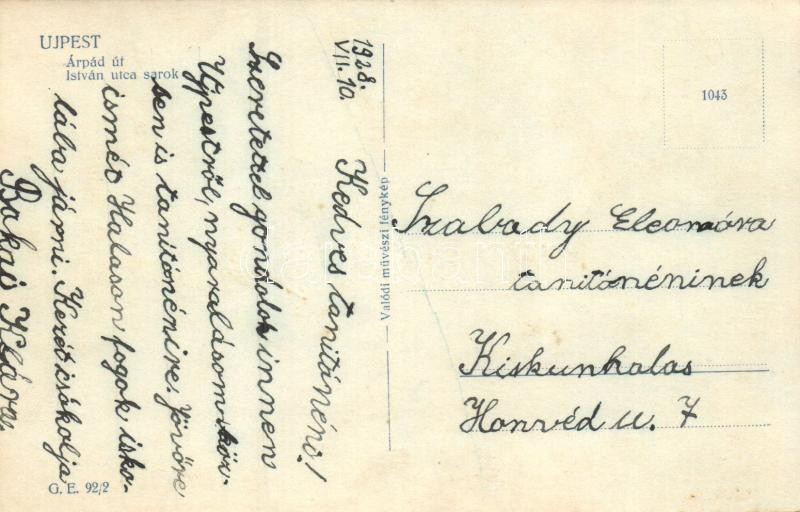 UJPEST
Árpád út
István utca sarok
1928.
VII. 10.
Kedves tanitónéni!
Szeretettel gondolok innen
Ujpestről, nyaralásom köz-
ben is tanitónénire. Jövőre
ismét Halason fogok isko-
lába járni. Kezét csókolja
Bakai Klára.
G. E. 92/2
Valódi művészi fénykép
1043
Szabady Eleonóra
tanitónéninek
Kiskunhalas
Honvéd u. 7